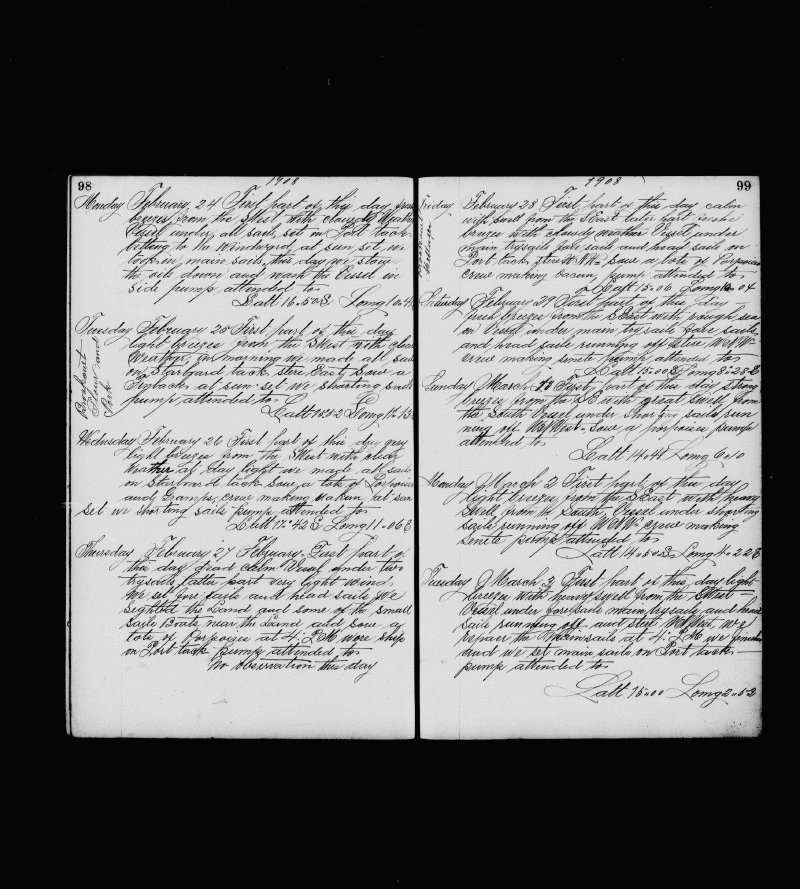 98
1908
Monday February, 24 First part of this day
breezes from the SWest with cloudy Weather
Vessel under all sail, set on Port tack
to the Windward, at sun set, we
took in, main sails, this day we stow
the oile down and wash the Vessel in
side pump, attended to
Latt 16..50S Long 10..4
Tuesday February 25 First part of this day
light breezes from the SWest with clear
Weather, in morning we made all sail
on Starbard tack stere East, Saw a
Finbacks at sun set we shorting sails
pump, attended to
Latt Long 11..
Flour and
Pork
Wednesday February 26 First part of this day
light breezes from the SWest with clear
Weather at day light we made all sails
on Starboard tack saw, a lote of Porpoises
and Gramps, crew making at sun
set we shorting sails pump attended to
Latt 17..42S Long 11..06E
Thursday February 27 February. First part of
this day dead calm Vessel under two
trysails, latter part very light wind.
We set fore sails and head sails We
sighttet the Land and some of the small
Saile Boate near the Land and saw, a
lote of Porpoises at 4. P.M wore ship
on Port tack pump attended to
No observation this day
99
1908
Friday February 28 First part of this day calm
with swell from the SEast later part
breezes with cloudy weather Vessel under
main trysails fore sails and head sail on
Port tack, stere WNW. Saw a lote of Porpoises
crew making, pump attended to
Latt 15..06 Long 10..04
Saturday February 29 First part of this day
fresh breezes from the SEast with rough sea
on Vessel under main try sails fore sails
and head sails running off stere WNW
crew making senete pump attended to
Latt 15..00S Long 8..28E
Sunday March 1 First, part of this day strong
breezes from the SE with great swell from
the South Vessel under shorting sails run
ning off West. Saw a porpoises pump
attended to
Latt 14..48 Long 6..10
Monday March 2 First part of this day
light breezes, from the SEast with heavy
swell from the South, Vessel under shorting
sails running off WNW. crew making
senete pump attended to
Latt 14..50S Long 4..22E
Tuesday March 3 First part of this, day light
breezes with heavy swell from the SWest
Vessel under fore sails main trysails and head
sails running off and steer West, we
repaer the Mainsails at 4. P.M we
and we set main sails, on Port tack
pump attended to
Latt 15..00 Long 2..52